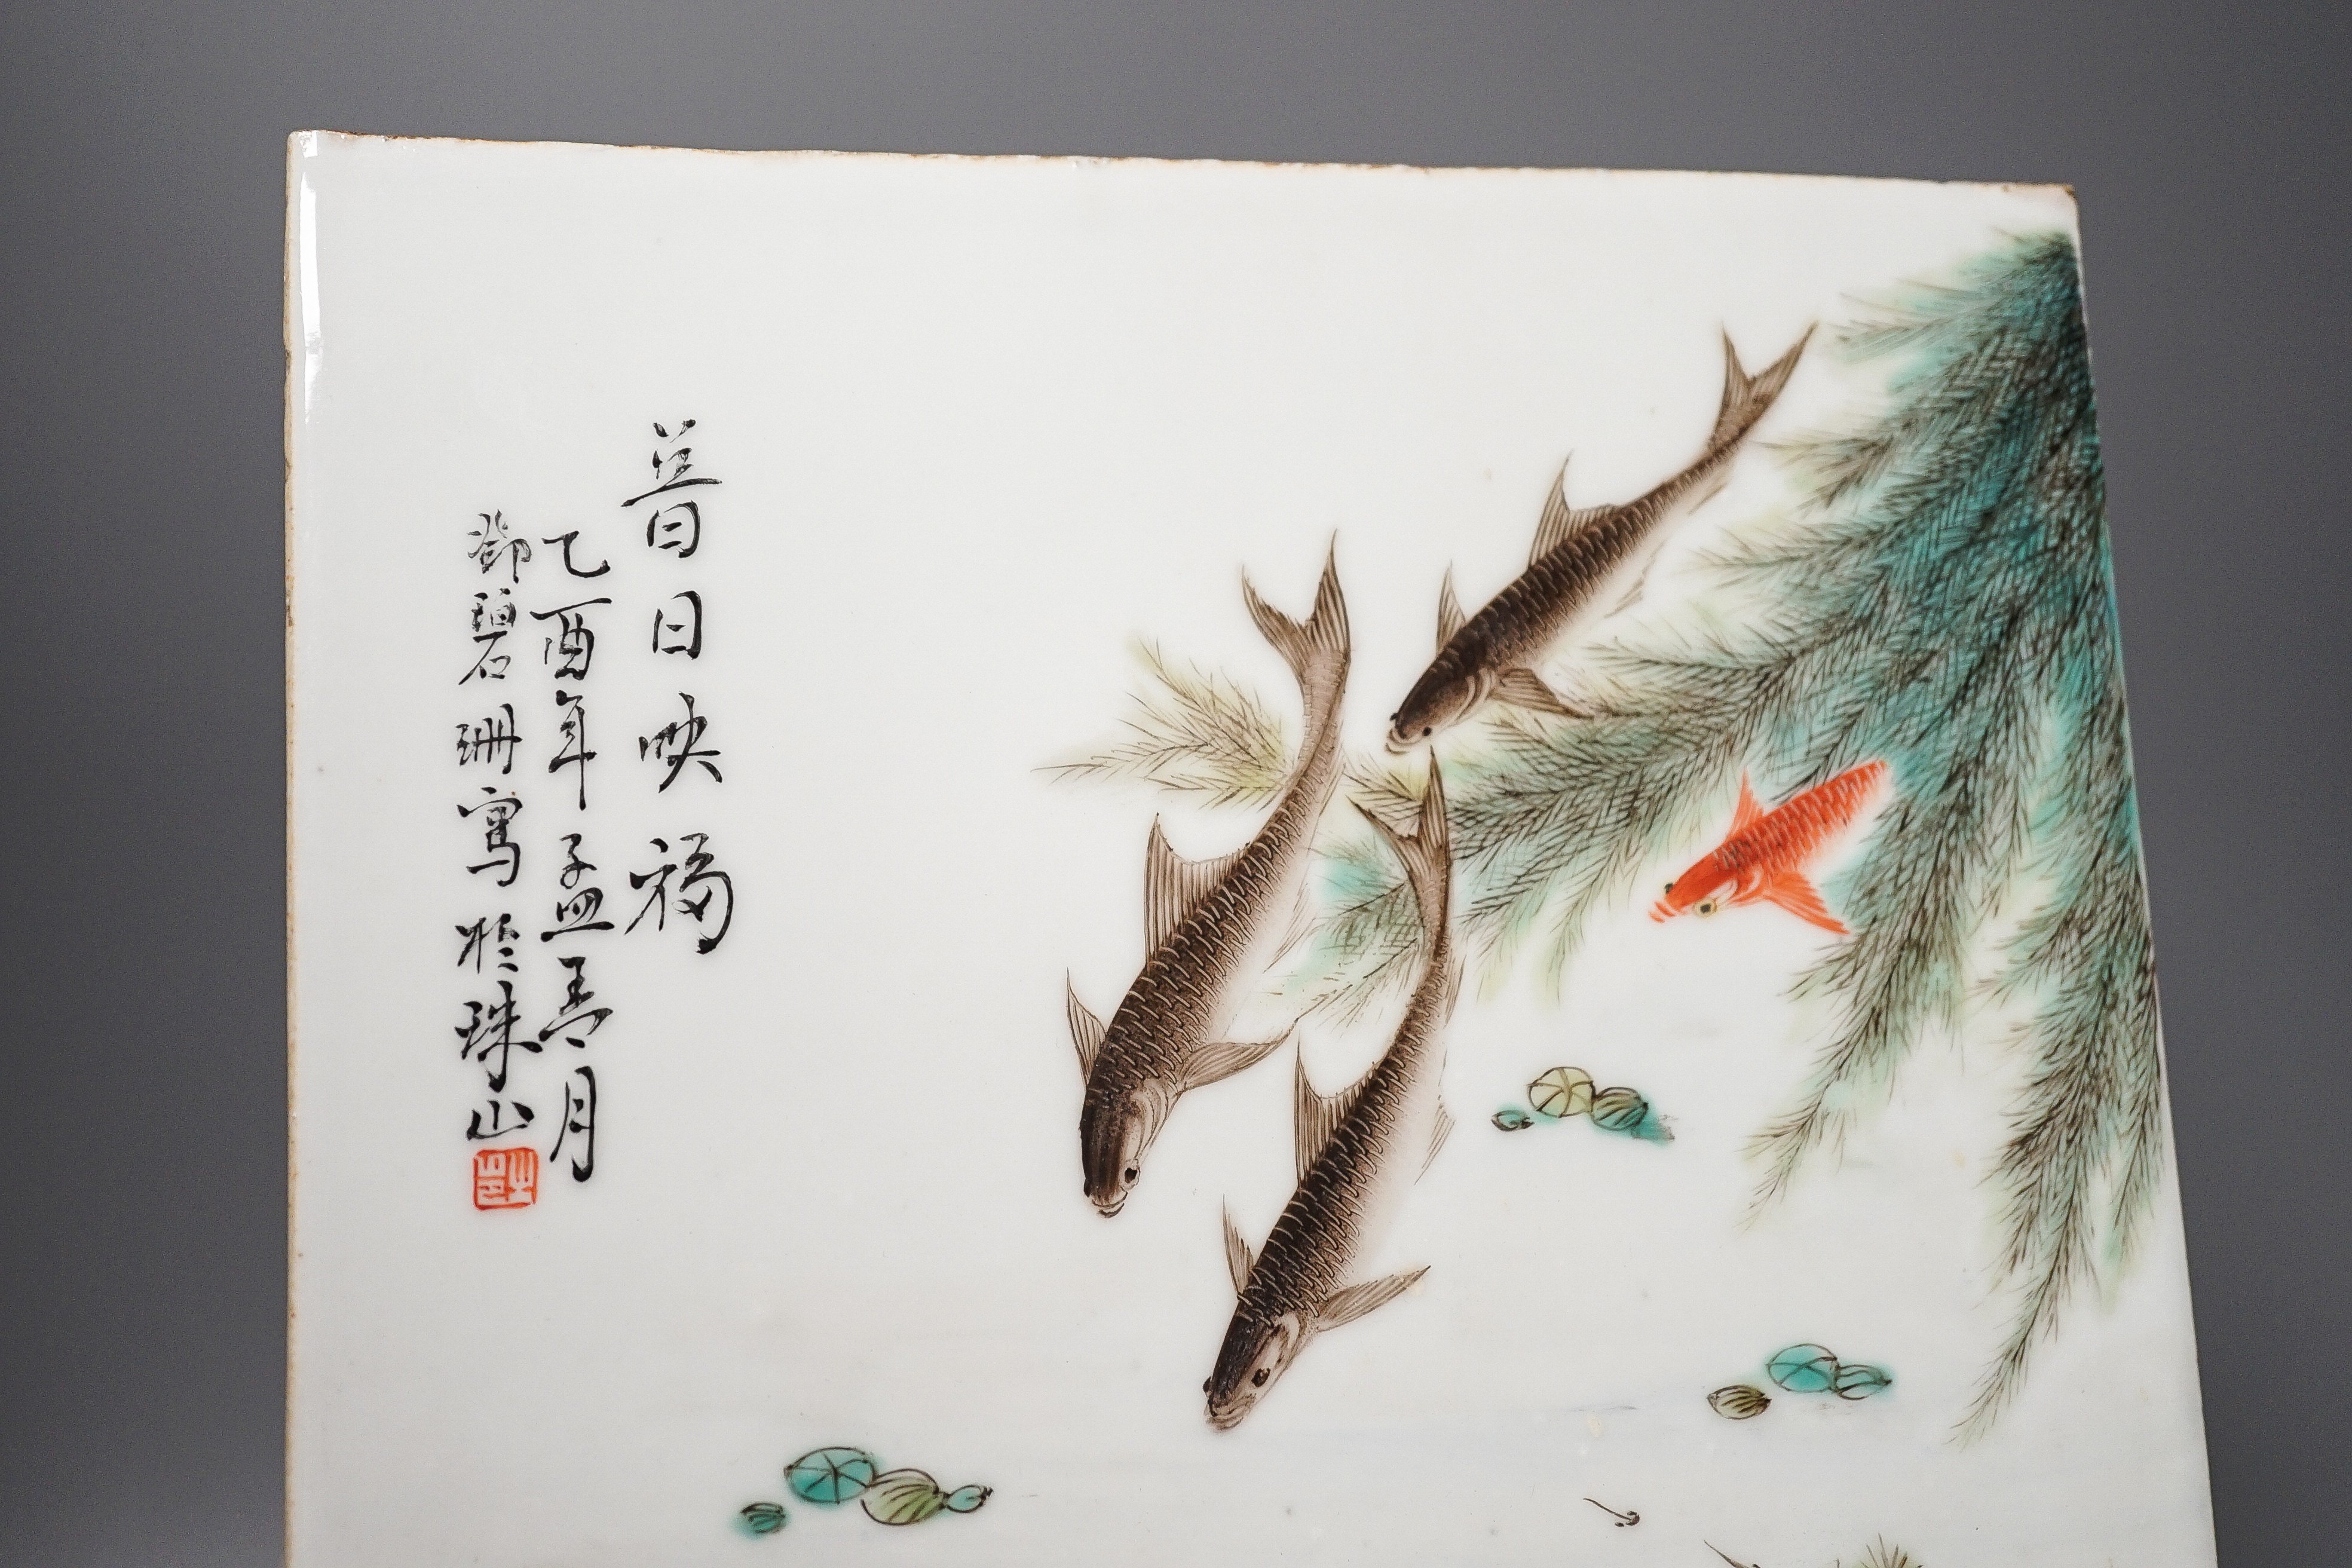 普日映福
乙酉年孟春月
鄧碧珊寫於珠山